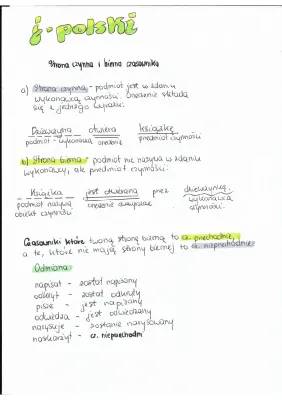 j. polski
Strona czynna i bierna czasownika
a) Strona czynna - podmiot jest w zdaniu
wykonawcą czynności. Orzeczenie składa
się z jednego wyrazu.
Dziewczyna otwiera książkę
podmiot - wykonawca orzeczenie przedmiot czynności
b) Strona bierna - podmiot nie nazywa w zdaniu
wykonawcy, ale przedmiot czynności.
Książka jest otwierana przez dziewczynę.
podmiot nazywa orzeczenie wykonawca
obiekt czynności czynności.
Czasowniki które tworzą stronę bierną to cz. przechodnie,
a te, które nie mają strony biernej to cz. nieprzechodnie.
Odmiana:
napisał - został napisany
odkrył - został odkryty
pisze - jest napisany
odwiedza - jest odwiedzany
narysuje - zostanie narysowany
naskarżył - cz. nieprzechodni